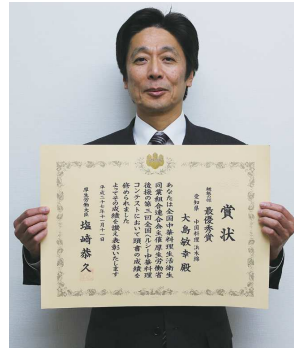 賞状
最優秀賞
愛知県
大島敏幸殿
あなたは全国中華料理生活衛生
同業組合連合会主催厚生労働省
後援の第三回全国ヘルシー中華料理
コンテストにおいて頭書の成績を
修められました
よってその成績を讃え表彰いたします
平成二十七年十一月十一日
厚生労働大臣
塩崎恭久